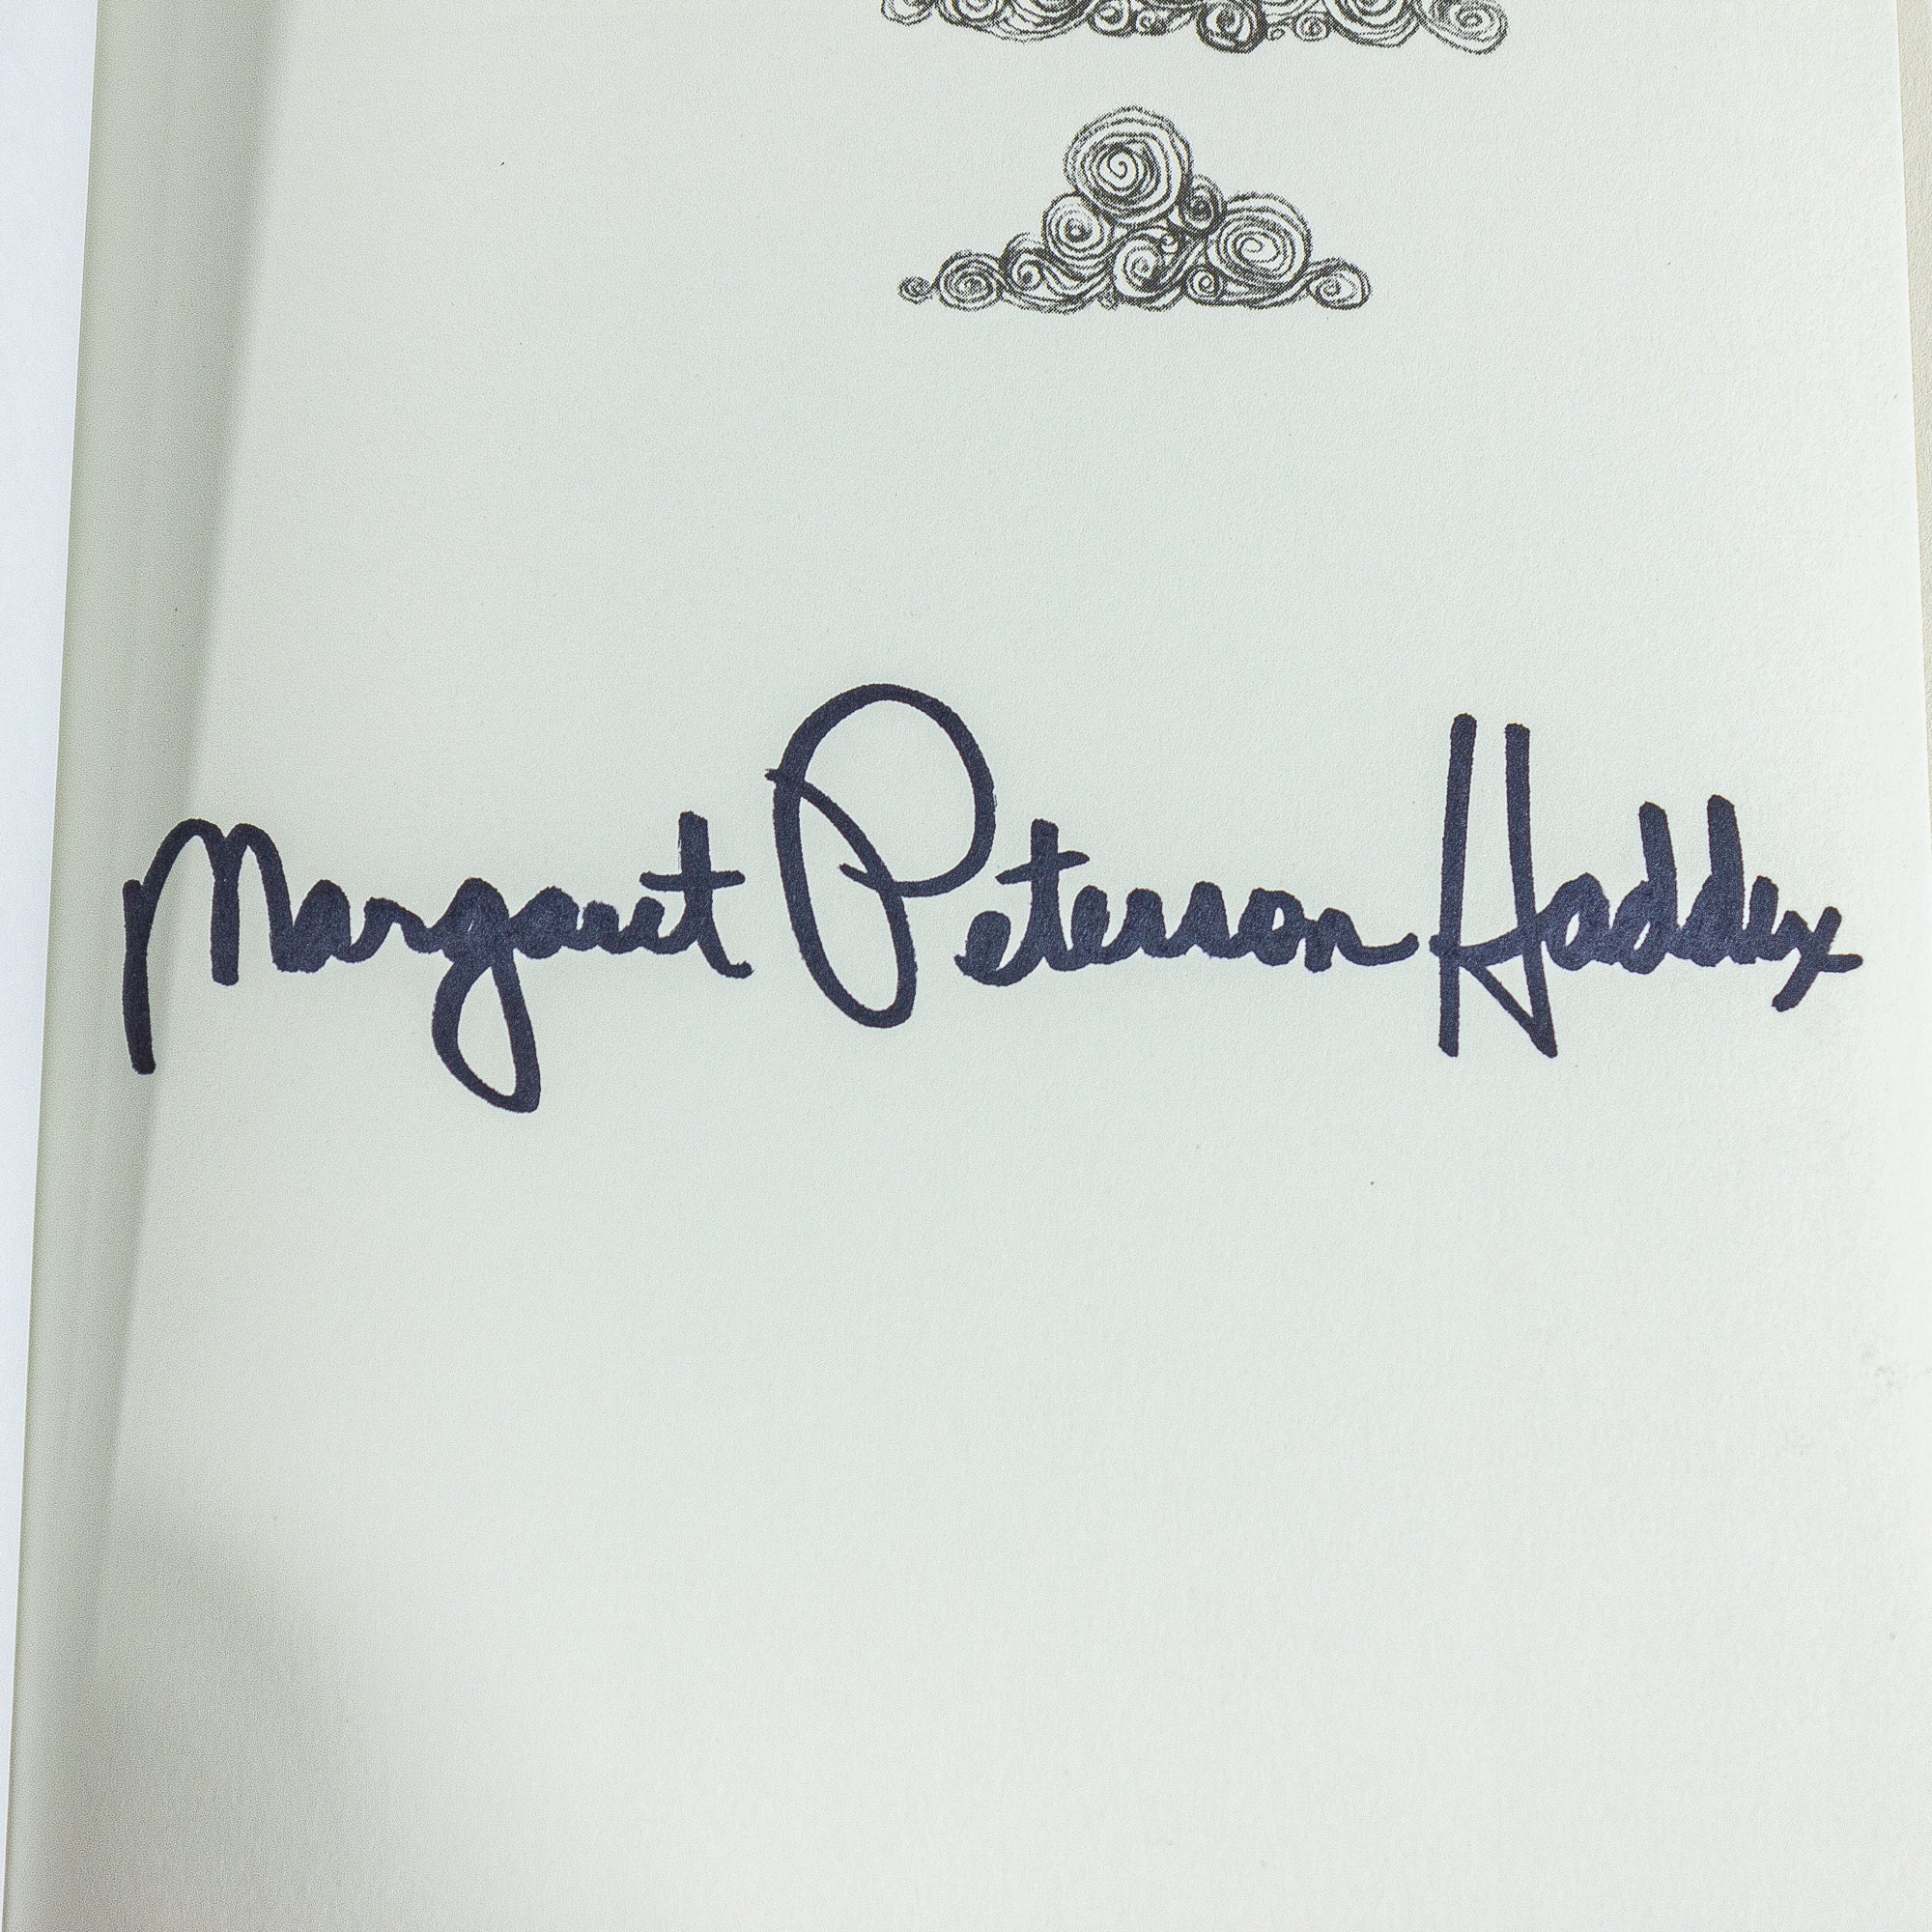 Margaret Peterson Haddix